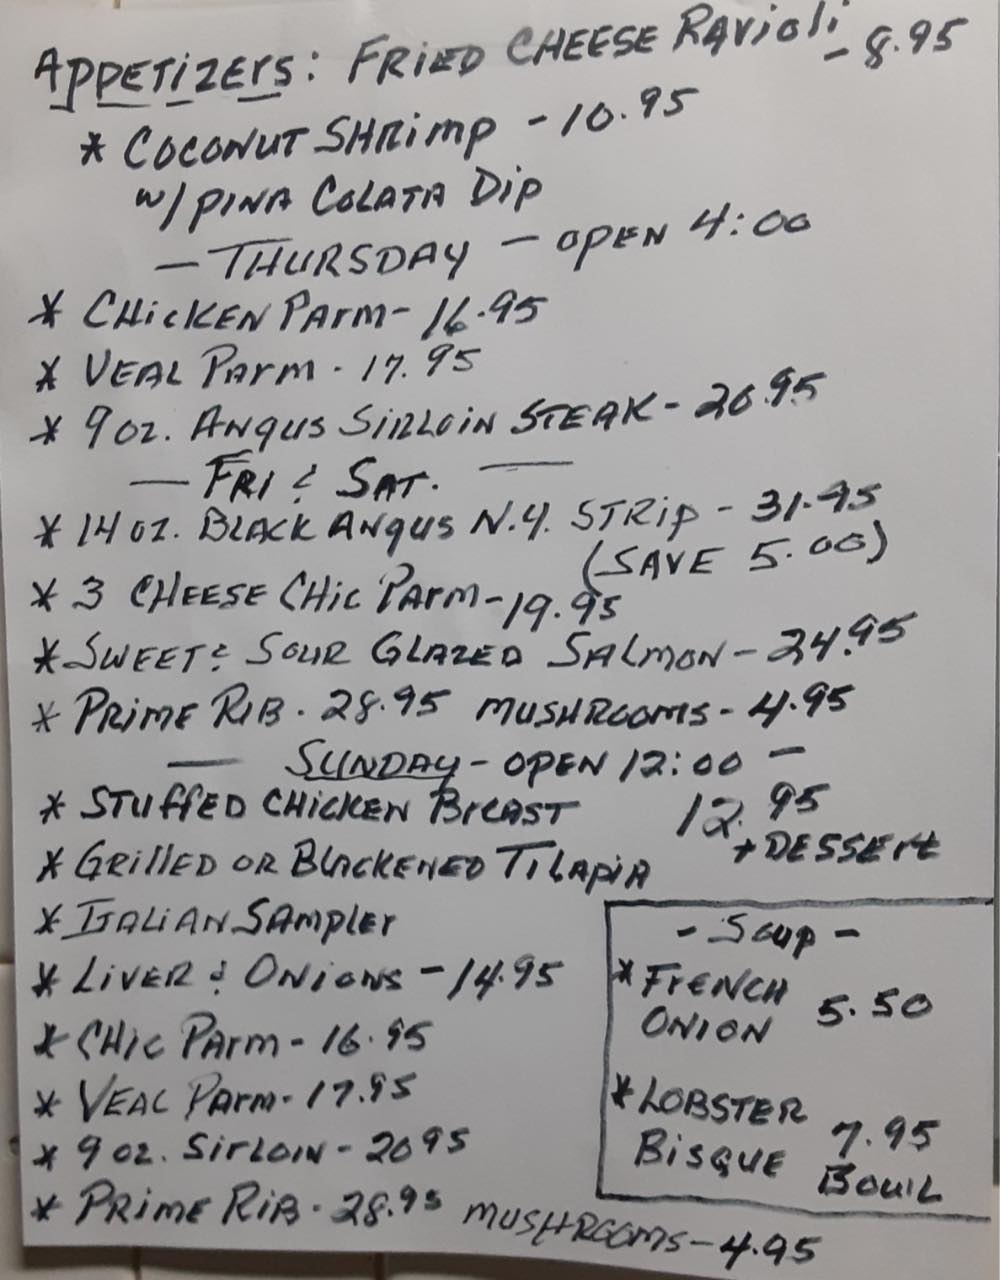 APPETIZERS: FRIED CHEESE RAVIOLI - 8.95
* COCONUT SHRIMP - 10.95
W/ PINA COLATA DIP
— THURSDAY — OPEN 4:00
* CHICKEN PARM - 16.95
* VEAL PARM - 17.95
* 9 OZ. ANGUS SIRLOIN STEAK - 20.95
— FRI & SAT. —
* 14 OZ. BLACK ANGUS N.Y. STRIP - 31.95
(SAVE 5.00)
* 3 CHEESE CHIC PARM - 19.95
* SWEET & SOUR GLAZED SALMON - 24.95
* PRIME RIB - 28.95 MUSHROOMS - 4.95
— SUNDAY - OPEN 12:00 —
* STUFFED CHICKEN BREAST 12.95
+ DESSERT
* GRILLED OR BLACKENED TILAPIA
* ITALIAN SAMPLER
* LIVER & ONIONS - 14.95
* CHIC PARM - 16.95
* VEAL PARM - 17.95
* 9 OZ. SIRLOIN - 20 95
* PRIME RIB - 28.95 MUSHROOMS - 4.95
- SOUP -
* FRENCH
ONION 5.50
* LOBSTER
BISQUE 7.95
BOWL